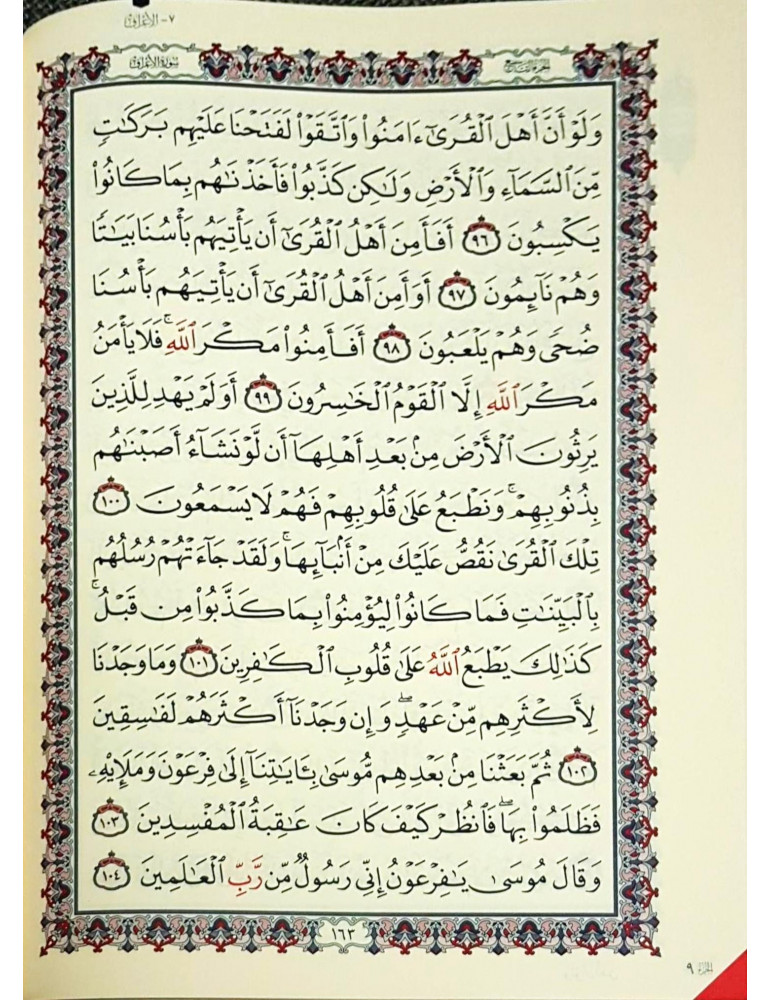 ٧- الأعراف
سورة الأعراف
الجزء التاسع
وَلَوْ أَنَّ أَهْلَ ٱلْقُرَىٰٓ ءَامَنُوا۟ وَٱتَّقَوْا۟ لَفَتَحْنَا عَلَيْهِم بَرَكَٰتٍ
مِّنَ ٱلسَّمَآءِ وَٱلْأَرْضِ وَلَٰكِن كَذَّبُوا۟ فَأَخَذْنَٰهُم بِمَا كَانُوا۟
يَكْسِبُونَ ٩٦ أَفَأَمِنَ أَهْلُ ٱلْقُرَىٰٓ أَن يَأْتِيَهُم بَأْسُنَا بَيَٰتًا
وَهُمْ نَآئِمُونَ ٩٧ أَوَأَمِنَ أَهْلُ ٱلْقُرَىٰٓ أَن يَأْتِيَهُم بَأْسُنَا
ضُحًى وَهُمْ يَلْعَبُونَ ٩٨ أَفَأَمِنُوا۟ مَكْرَ ٱللَّهِ ۚ فَلَا يَأْمَنُ
مَكْرَ ٱللَّهِ إِلَّا ٱلْقَوْمُ ٱلْخَٰسِرُونَ ٩٩ أَوَلَمْ يَهْدِ لِلَّذِينَ
يَرِثُونَ ٱلْأَرْضَ مِنۢ بَعْدِ أَهْلِهَآ أَن لَّوْ نَشَآءُ أَصَبْنَٰهُم
بِذُنُوبِهِمْ ۚ وَنَطْبَعُ عَلَىٰ قُلُوبِهِمْ فَهُمْ لَا يَسْمَعُونَ ١٠٠
تِلْكَ ٱلْقُرَىٰ نَقُصُّ عَلَيْكَ مِنْ أَنۢبَآئِهَا ۚ وَلَقَدْ جَآءَتْهُمْ رُسُلُهُم
بِٱلْبَيِّنَٰتِ فَمَا كَانُوا۟ لِيُؤْمِنُوا۟ بِمَا كَذَّبُوا۟ مِن قَبْلُ ۚ
كَذَٰلِكَ يَطْبَعُ ٱللَّهُ عَلَىٰ قُلُوبِ ٱلْكَٰفِرِينَ ١٠١ وَمَا وَجَدْنَا
لِأَكْثَرِهِم مِّنْ عَهْدٍ ۖ وَإِن وَجَدْنَآ أَكْثَرَهُمْ لَفَٰسِقِينَ
١٠٢ ثُمَّ بَعَثْنَا مِنۢ بَعْدِهِم مُّوسَىٰ بِـَٔايَٰتِنَآ إِلَىٰ فِرْعَوْنَ وَمَلَإِي۟هِۦ
فَظَلَمُوا۟ بِهَا ۖ فَٱنظُرْ كَيْفَ كَانَ عَٰقِبَةُ ٱلْمُفْسِدِينَ ١٠٣
وَقَالَ مُوسَىٰ يَٰفِرْعَوْنُ إِنِّى رَسُولٌ مِّن رَّبِّ ٱلْعَٰلَمِينَ ١٠٤
١٦٣
الجزء ٩